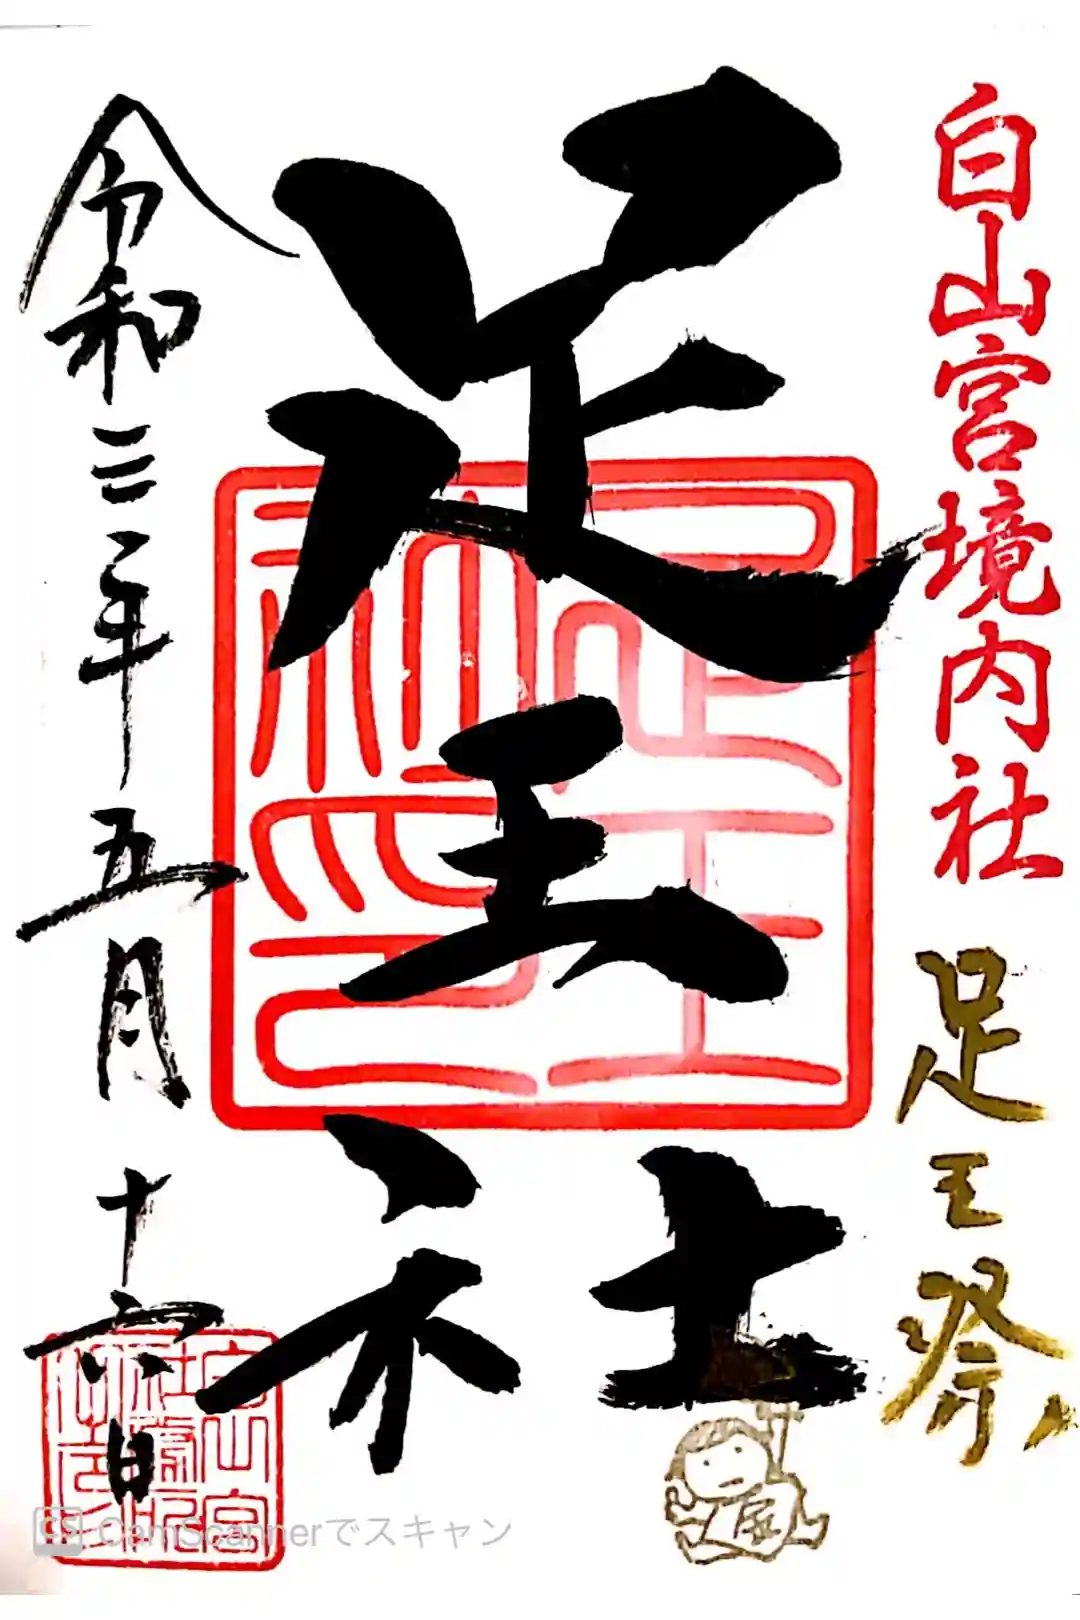 白山宮境内社
足王祭
足王社
令和三年五月十六日
CS CamScannerでスキャン